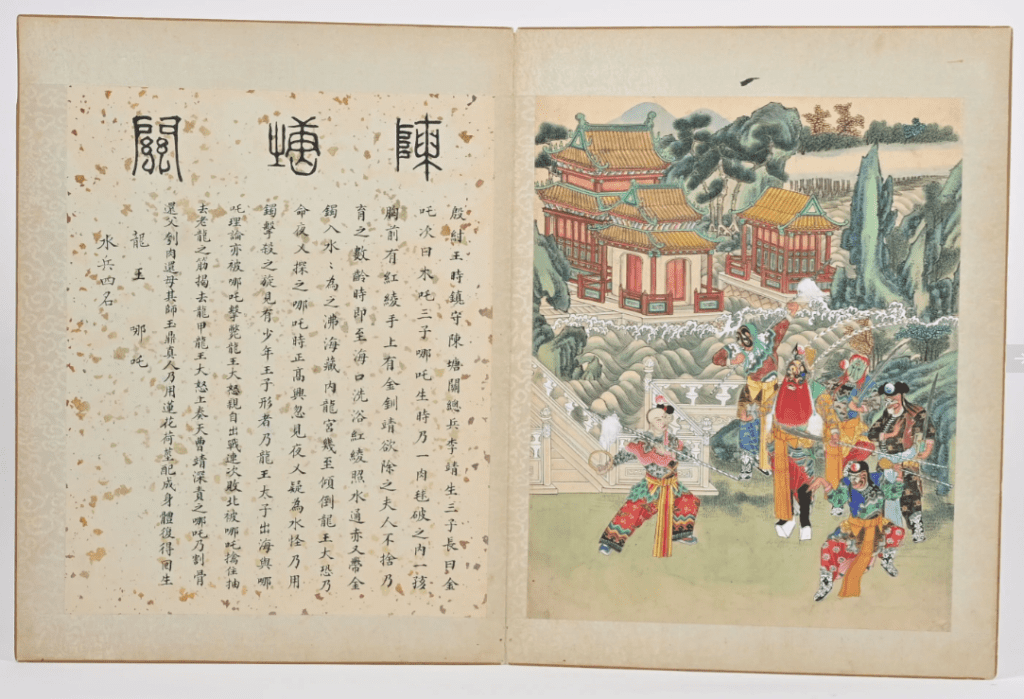 陳塘關
殷紂王時鎮守陳塘關總兵李靖生三子長曰金
吒次曰木吒三子哪吒生時乃一肉毬破之內一孩
胸前有紅綾手上有金釧靖欲除之夫人不捨乃
育之數齡時即至海口洗浴紅綾照水通赤又帶金
鐲入水〻為之沸海藏內龍宮幾至傾倒龍王大恐乃
命夜乂探之哪吒時正高興忽見夜乂疑為水怪乃用
鐲擊殺之旋見有少年王子形者乃龍王太子出海與哪
吒理論亦被哪吒擊斃龍王大怒親自出戰連次敗北被哪吒擒住抽
去老龍之筋揭去龍甲龍王大怒上奏天曹靖深責之哪吒乃割骨
還父剖肉還母其師玉鼎真人乃用蓮花荷莖配成身體復得回生
龍王 哪吒
水兵四名